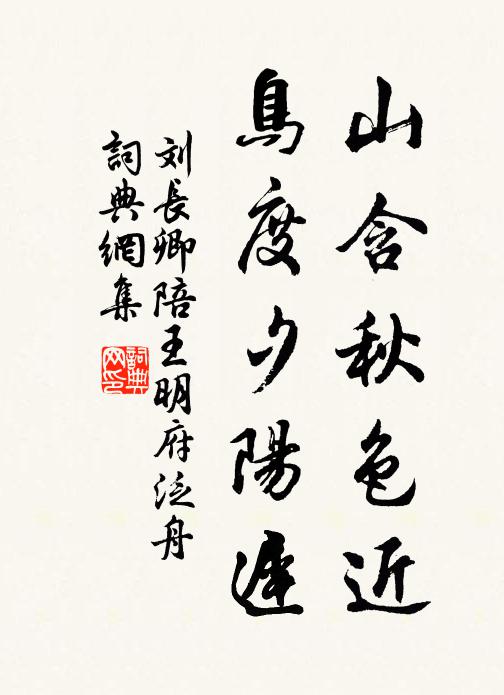 山含秋色近
鳥度夕陽遲
刘長卿陪王明府泛舟
詞典網集
詞典网印